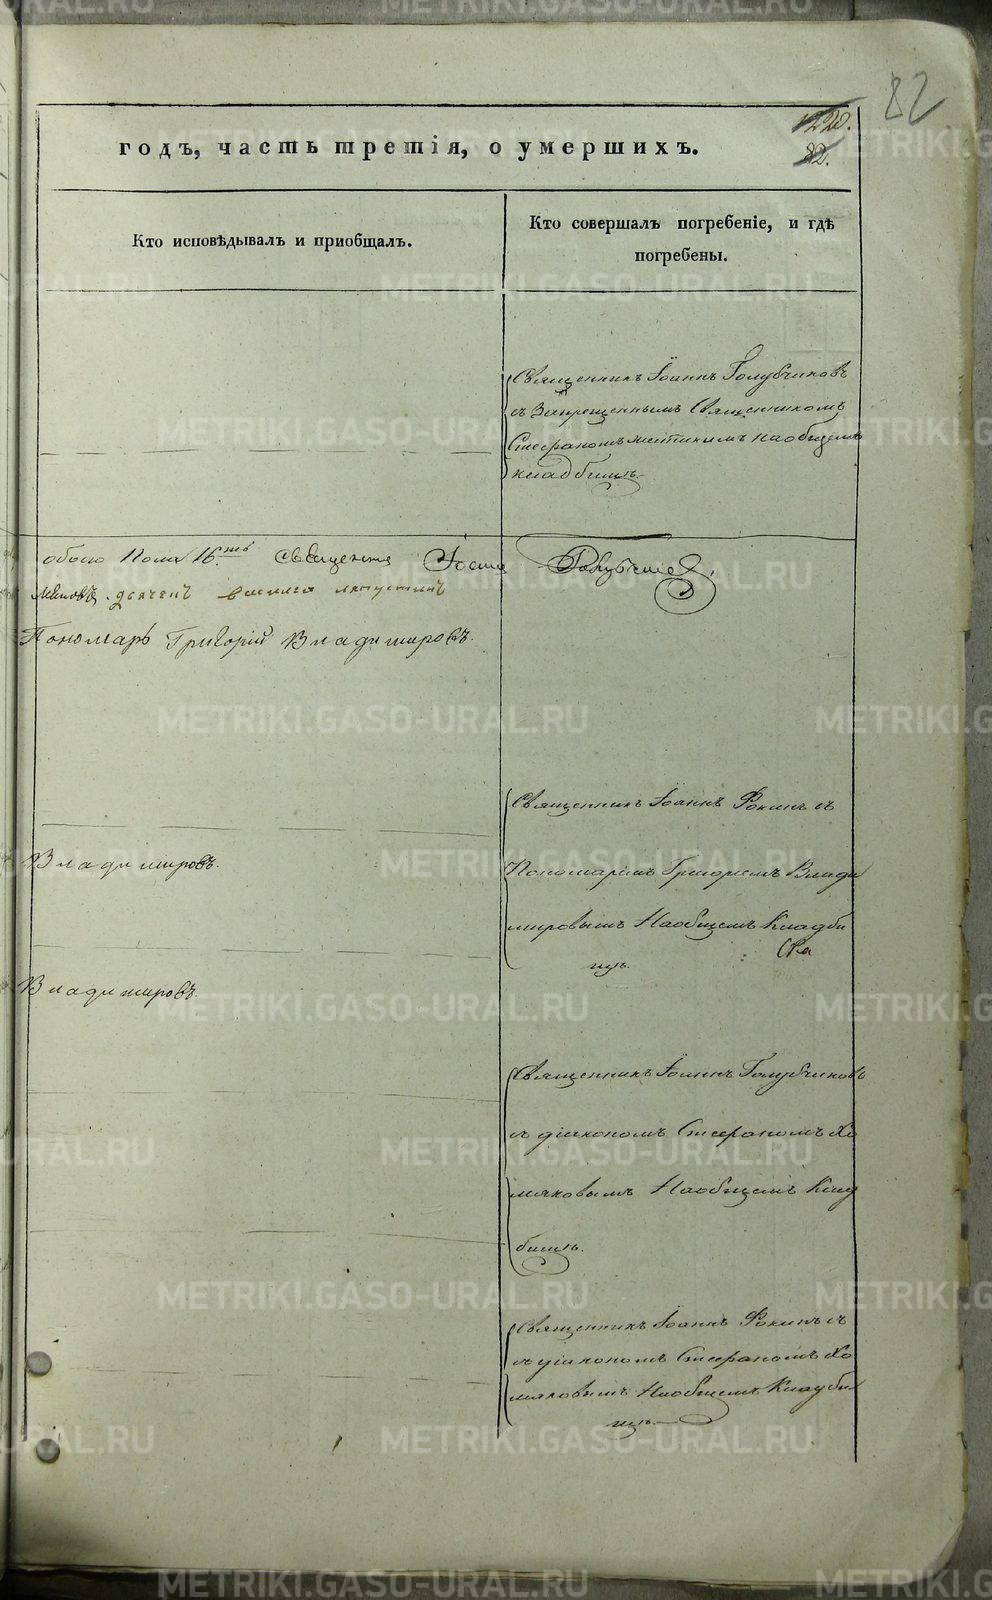 82
1220.
82.
годъ, часть третія, о умершихъ.
Кто исповѣдывалъ и приобщалъ.
Кто совершалъ погребеніе, и гдѣ
погребены.
Священникъ Іоаннъ Голубчиковъ
съ Запрещеннымъ Священникомъ
Стефаномъ на общемъ
кладбищѣ.
обоего пола 16.ть Священникъ Іоаннъ Голубчиковъ.
дьячекъ василей лапустинъ
Пономарь Григорій Владимировъ.
Священникъ Іоаннъ Фокинъ съ
Владимировъ.
Пономаремъ Григоріемъ Влади
мировымъ На общемъ Кладби
щѣ.
Владимировъ.
Священникъ Іоаннъ Голубчиковъ
съ діакономъ Стефаномъ Хо
мяковымъ На общемъ Клад
бищѣ.
Священникъ Іоаннъ Фокинъ съ
діакономъ Стефаномъ Хо
мяковымъ На общемъ Кладби
щѣ.
METRIKI.GASO-URAL.RU